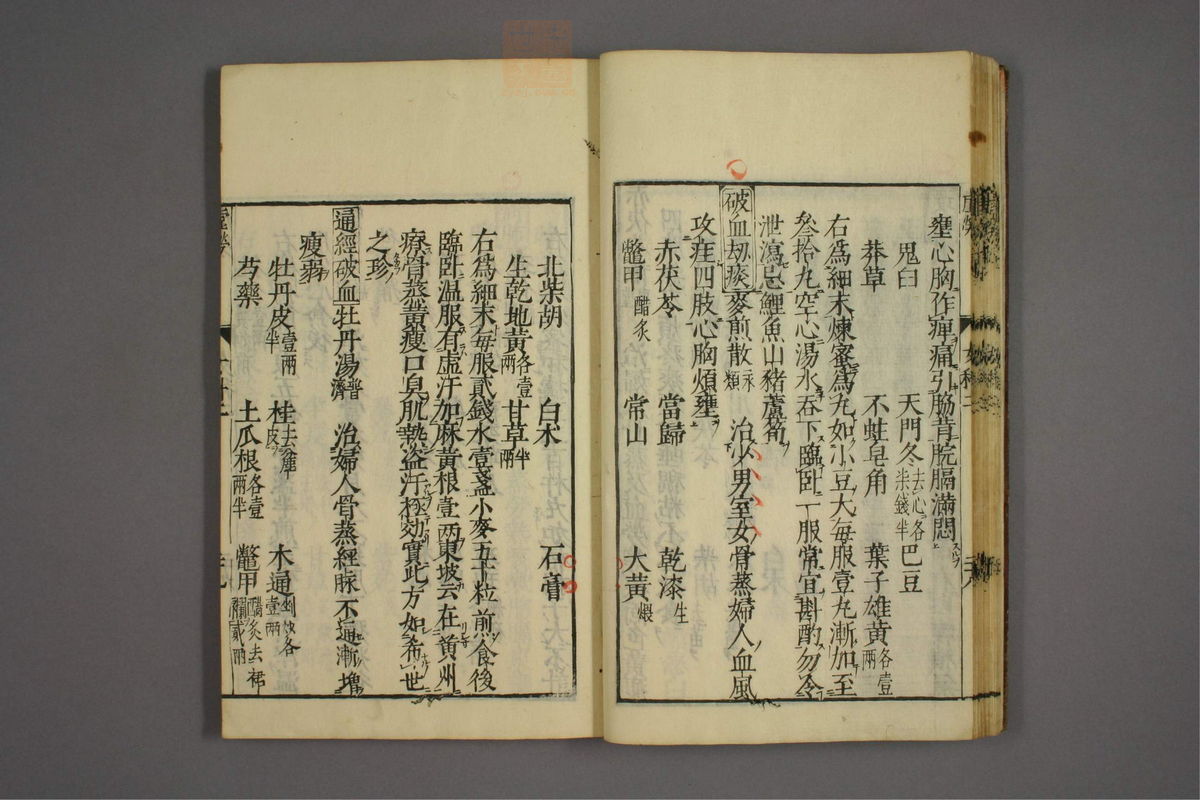 壅心胸作痺痛引腸背脘膈滿悶
鬼臼 天門冬去心各半錢半 巴豆
莽草 不蛀皂角 葉子雄黃各壹兩
右為細末煉蜜為丸如小豆大每服壹丸漸加至
叁拾丸空心湯水吞下臨臥一服常宜斟酌勿令
泄瀉忌鯉魚山豬蘆筍
破血刼痰麥煎散 治少男室女骨蒸婦人血風
攻疰四肢心胸煩壅
赤茯苓 當歸 乾漆生
鱉甲醋炙 常山 大黃煨
北柴胡 白朮 石膏
生乾地黃各壹兩 甘草半兩
右為細末每服貳錢水壹盞小麥五十粒煎食後
臨臥溫服有虛汗加麻黃根壹兩東坡云在黃州
療骨蒸黃瘦口臭肌熱盜汗極効實此方如希世
之珍
通經破血牡丹湯普濟 治婦人骨蒸經脉不通漸增
瘦弱
牡丹皮壹兩半 桂去麄皮 木通剉炒各壹兩
芍藥 土瓜根各壹兩半 鱉甲醋炙去裙襴貳兩